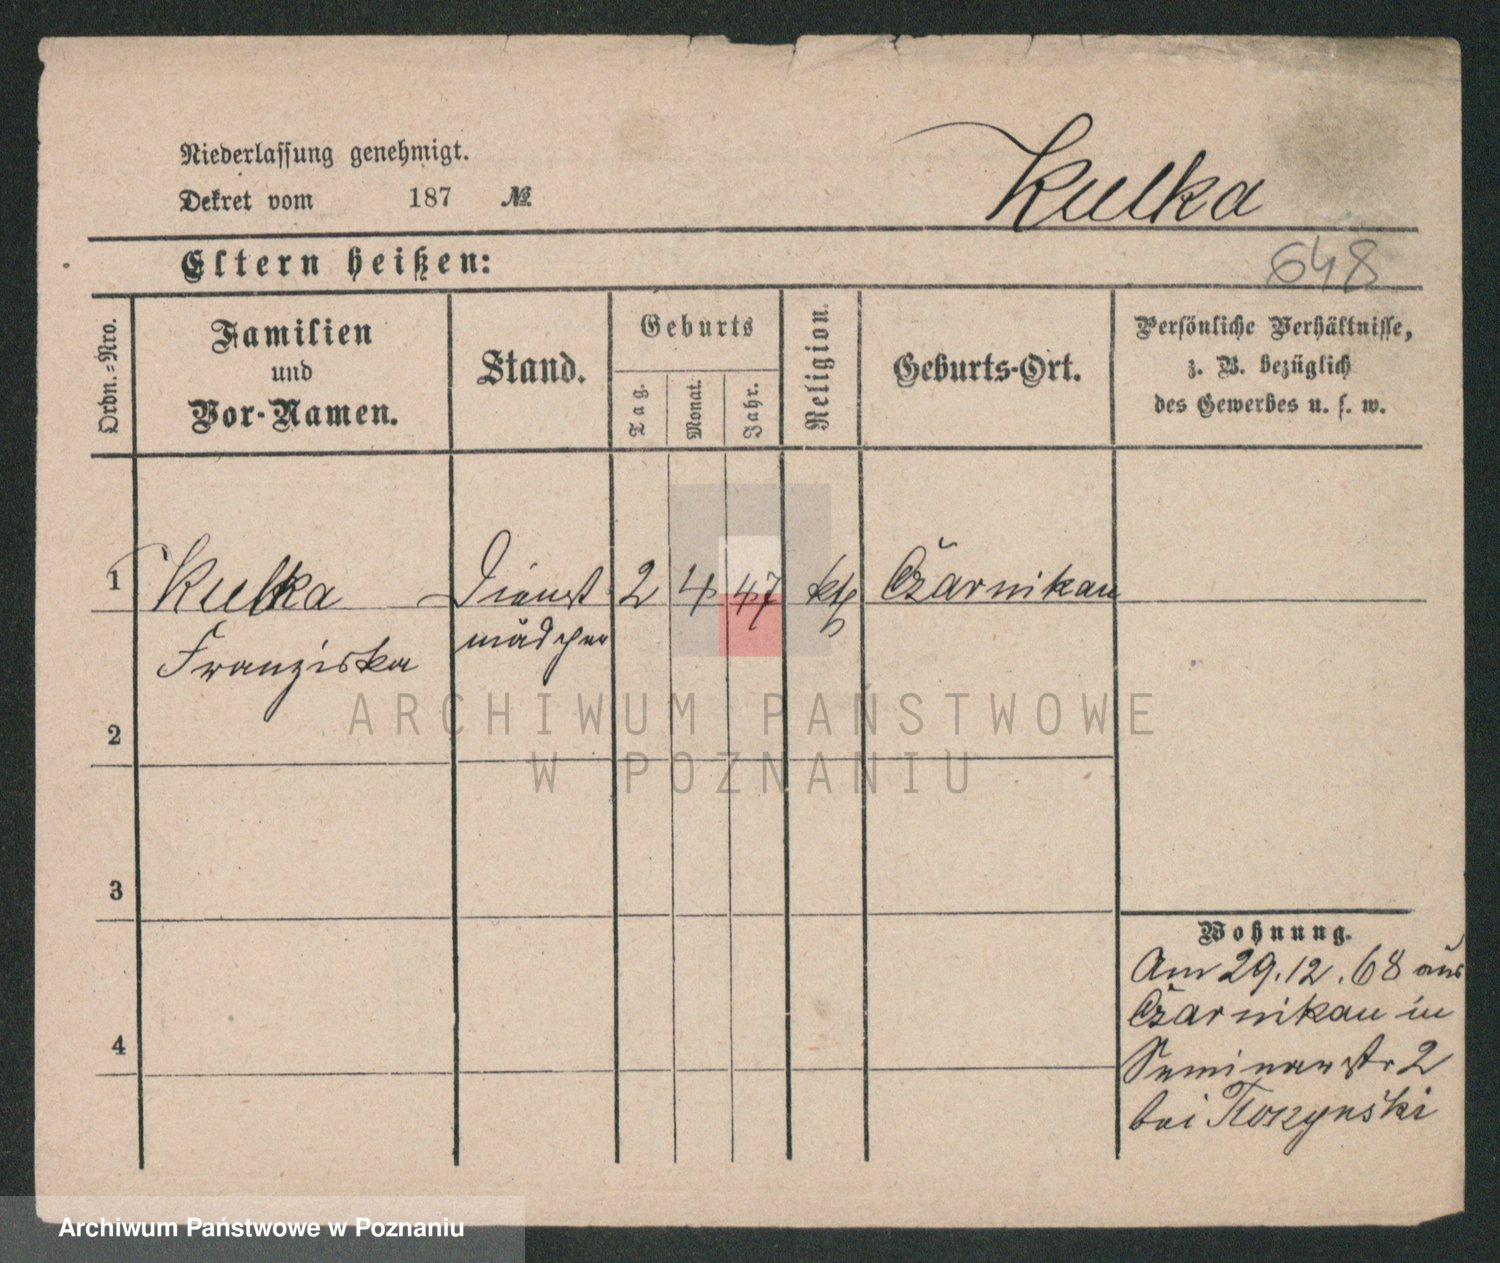 Niederlassung genehmigt.
Dekret vom 187 №
Kulka
648
Eltern heißen:
Ordn.=Nro.
Familien
und
Vor-Namen.
Stand.
Geburts
Tag.
Monat.
Jahr.
Religion.
Geburts-Ort.
Persönliche Verhältnisse,
z. B. bezüglich
des Gewerbes u. s. w.
1 Kulka Dienst 2 4 47 kth Czarnikau
Franziska mädchen
2
3
4
Wohnung.
Am 29.12.68 aus
Czarnikau in
Seminarstr 2
bei
ARCHIWUM PAŃSTWOWE
W POZNANIU
Archiwum Państwowe w Poznaniu